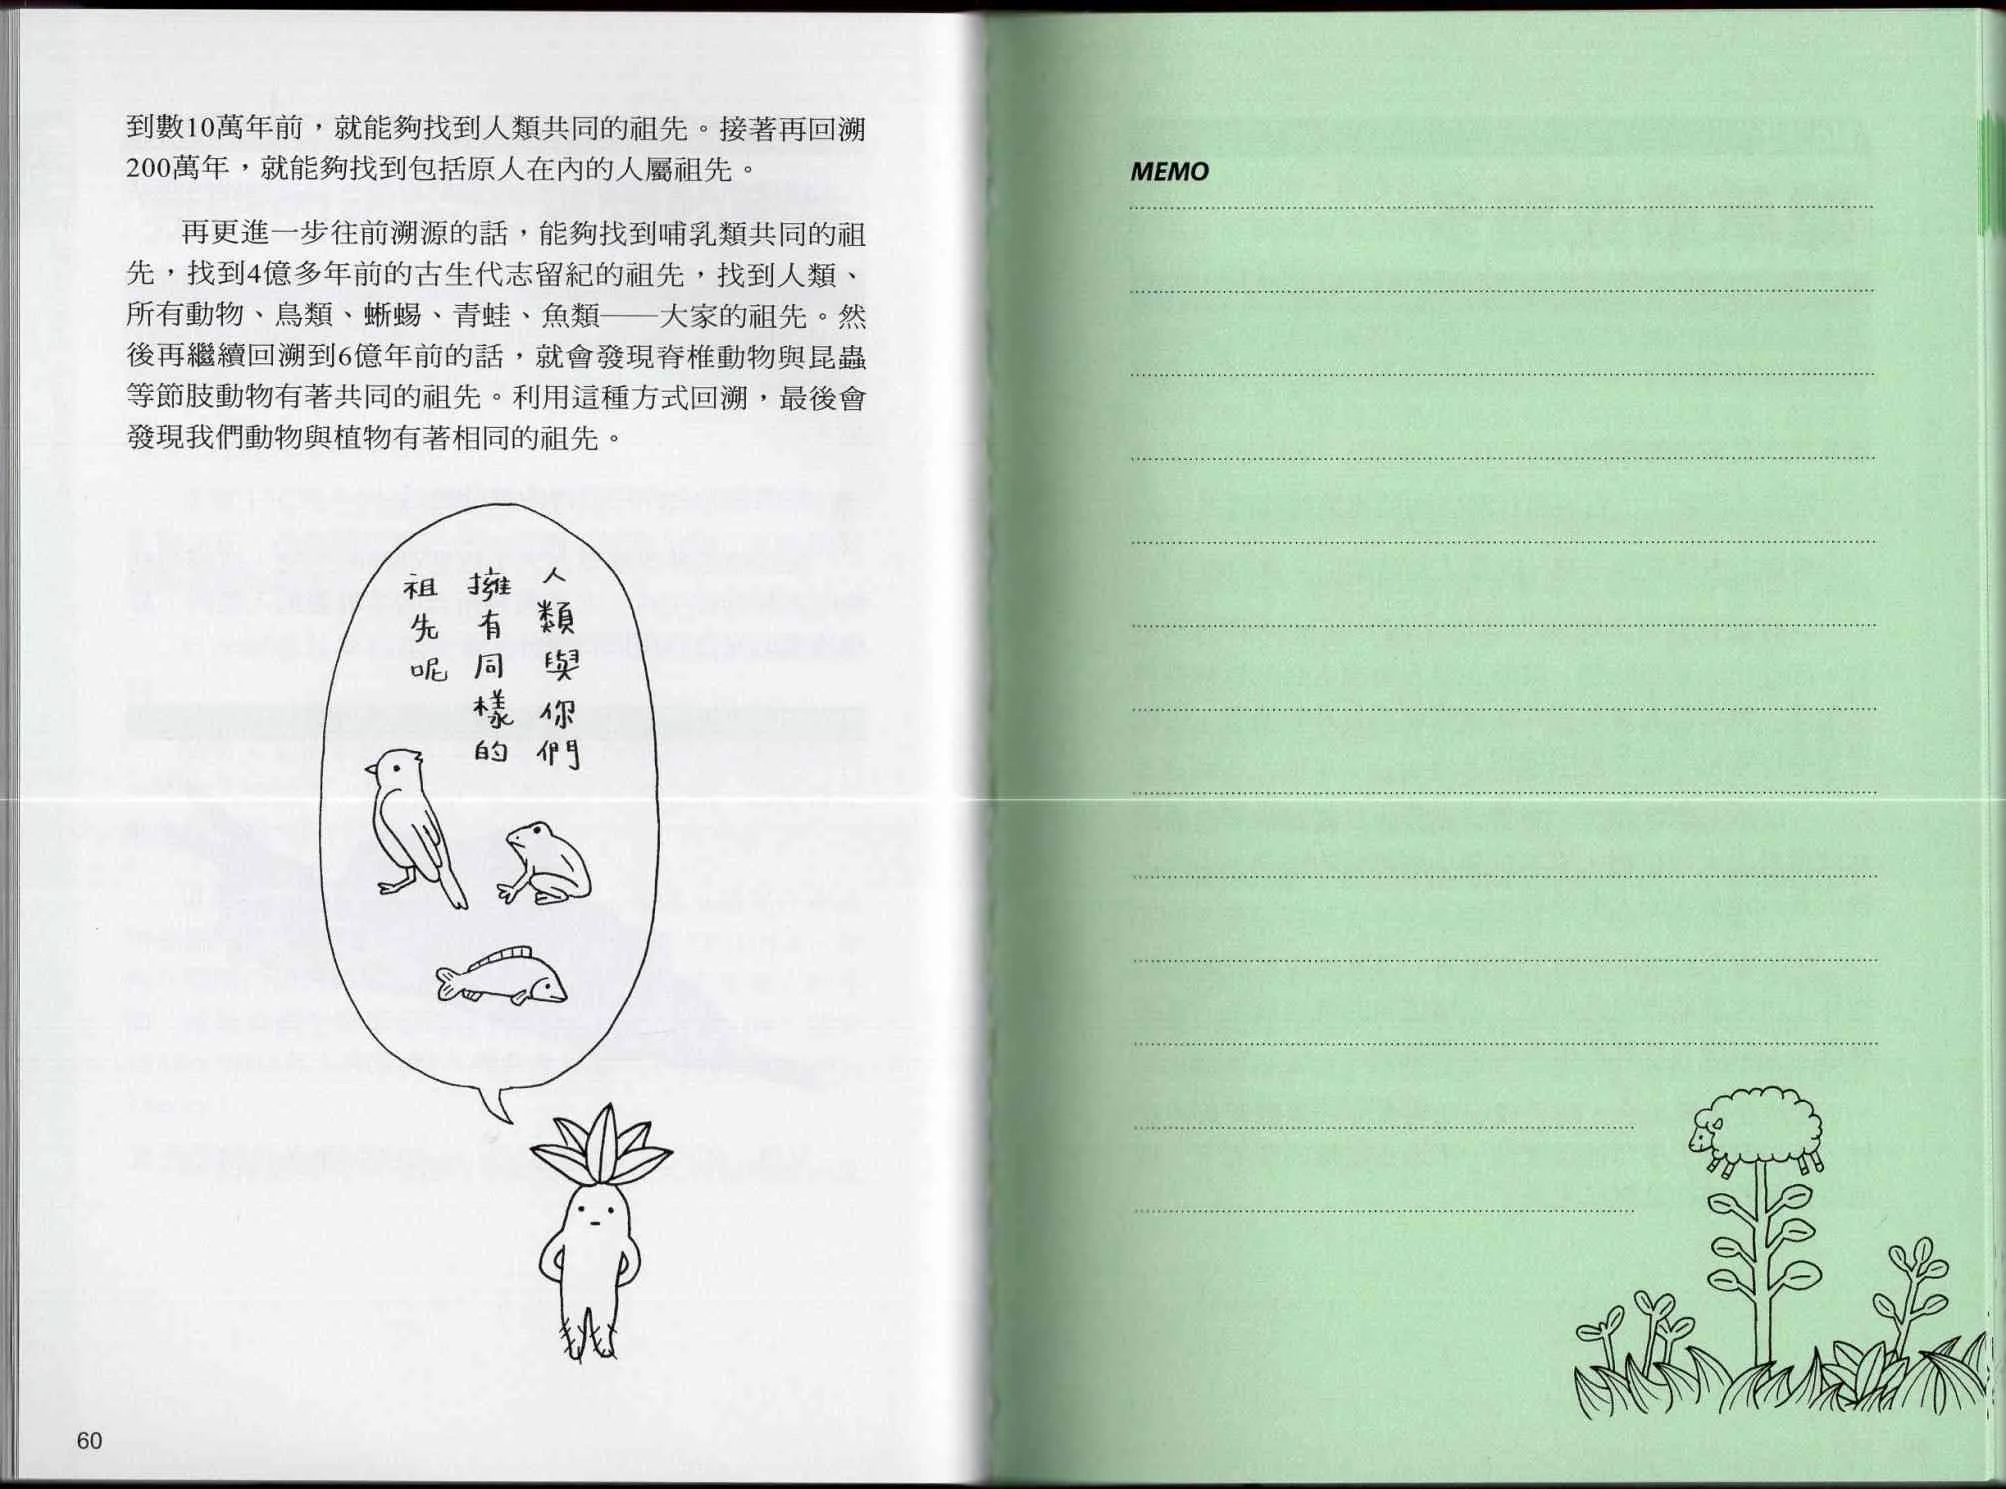 到數10萬年前，就能夠找到人類共同的祖先。接著再回溯
200萬年，就能夠找到包括原人在內的人屬祖先。
再更進一步往前溯源的話，能夠找到哺乳類共同的祖
先，找到4億多年前的古生代志留紀的祖先，找到人類、
所有動物、鳥類、蜥蜴、青蛙、魚類——大家的祖先。然
後再繼續回溯到6億年前的話，就會發現脊椎動物與昆蟲
等節肢動物有著共同的祖先。利用這種方式回溯，最後會
發現我們動物與植物有著相同的祖先。
人類與你們
擁有同樣的
祖先呢
60
MEMO